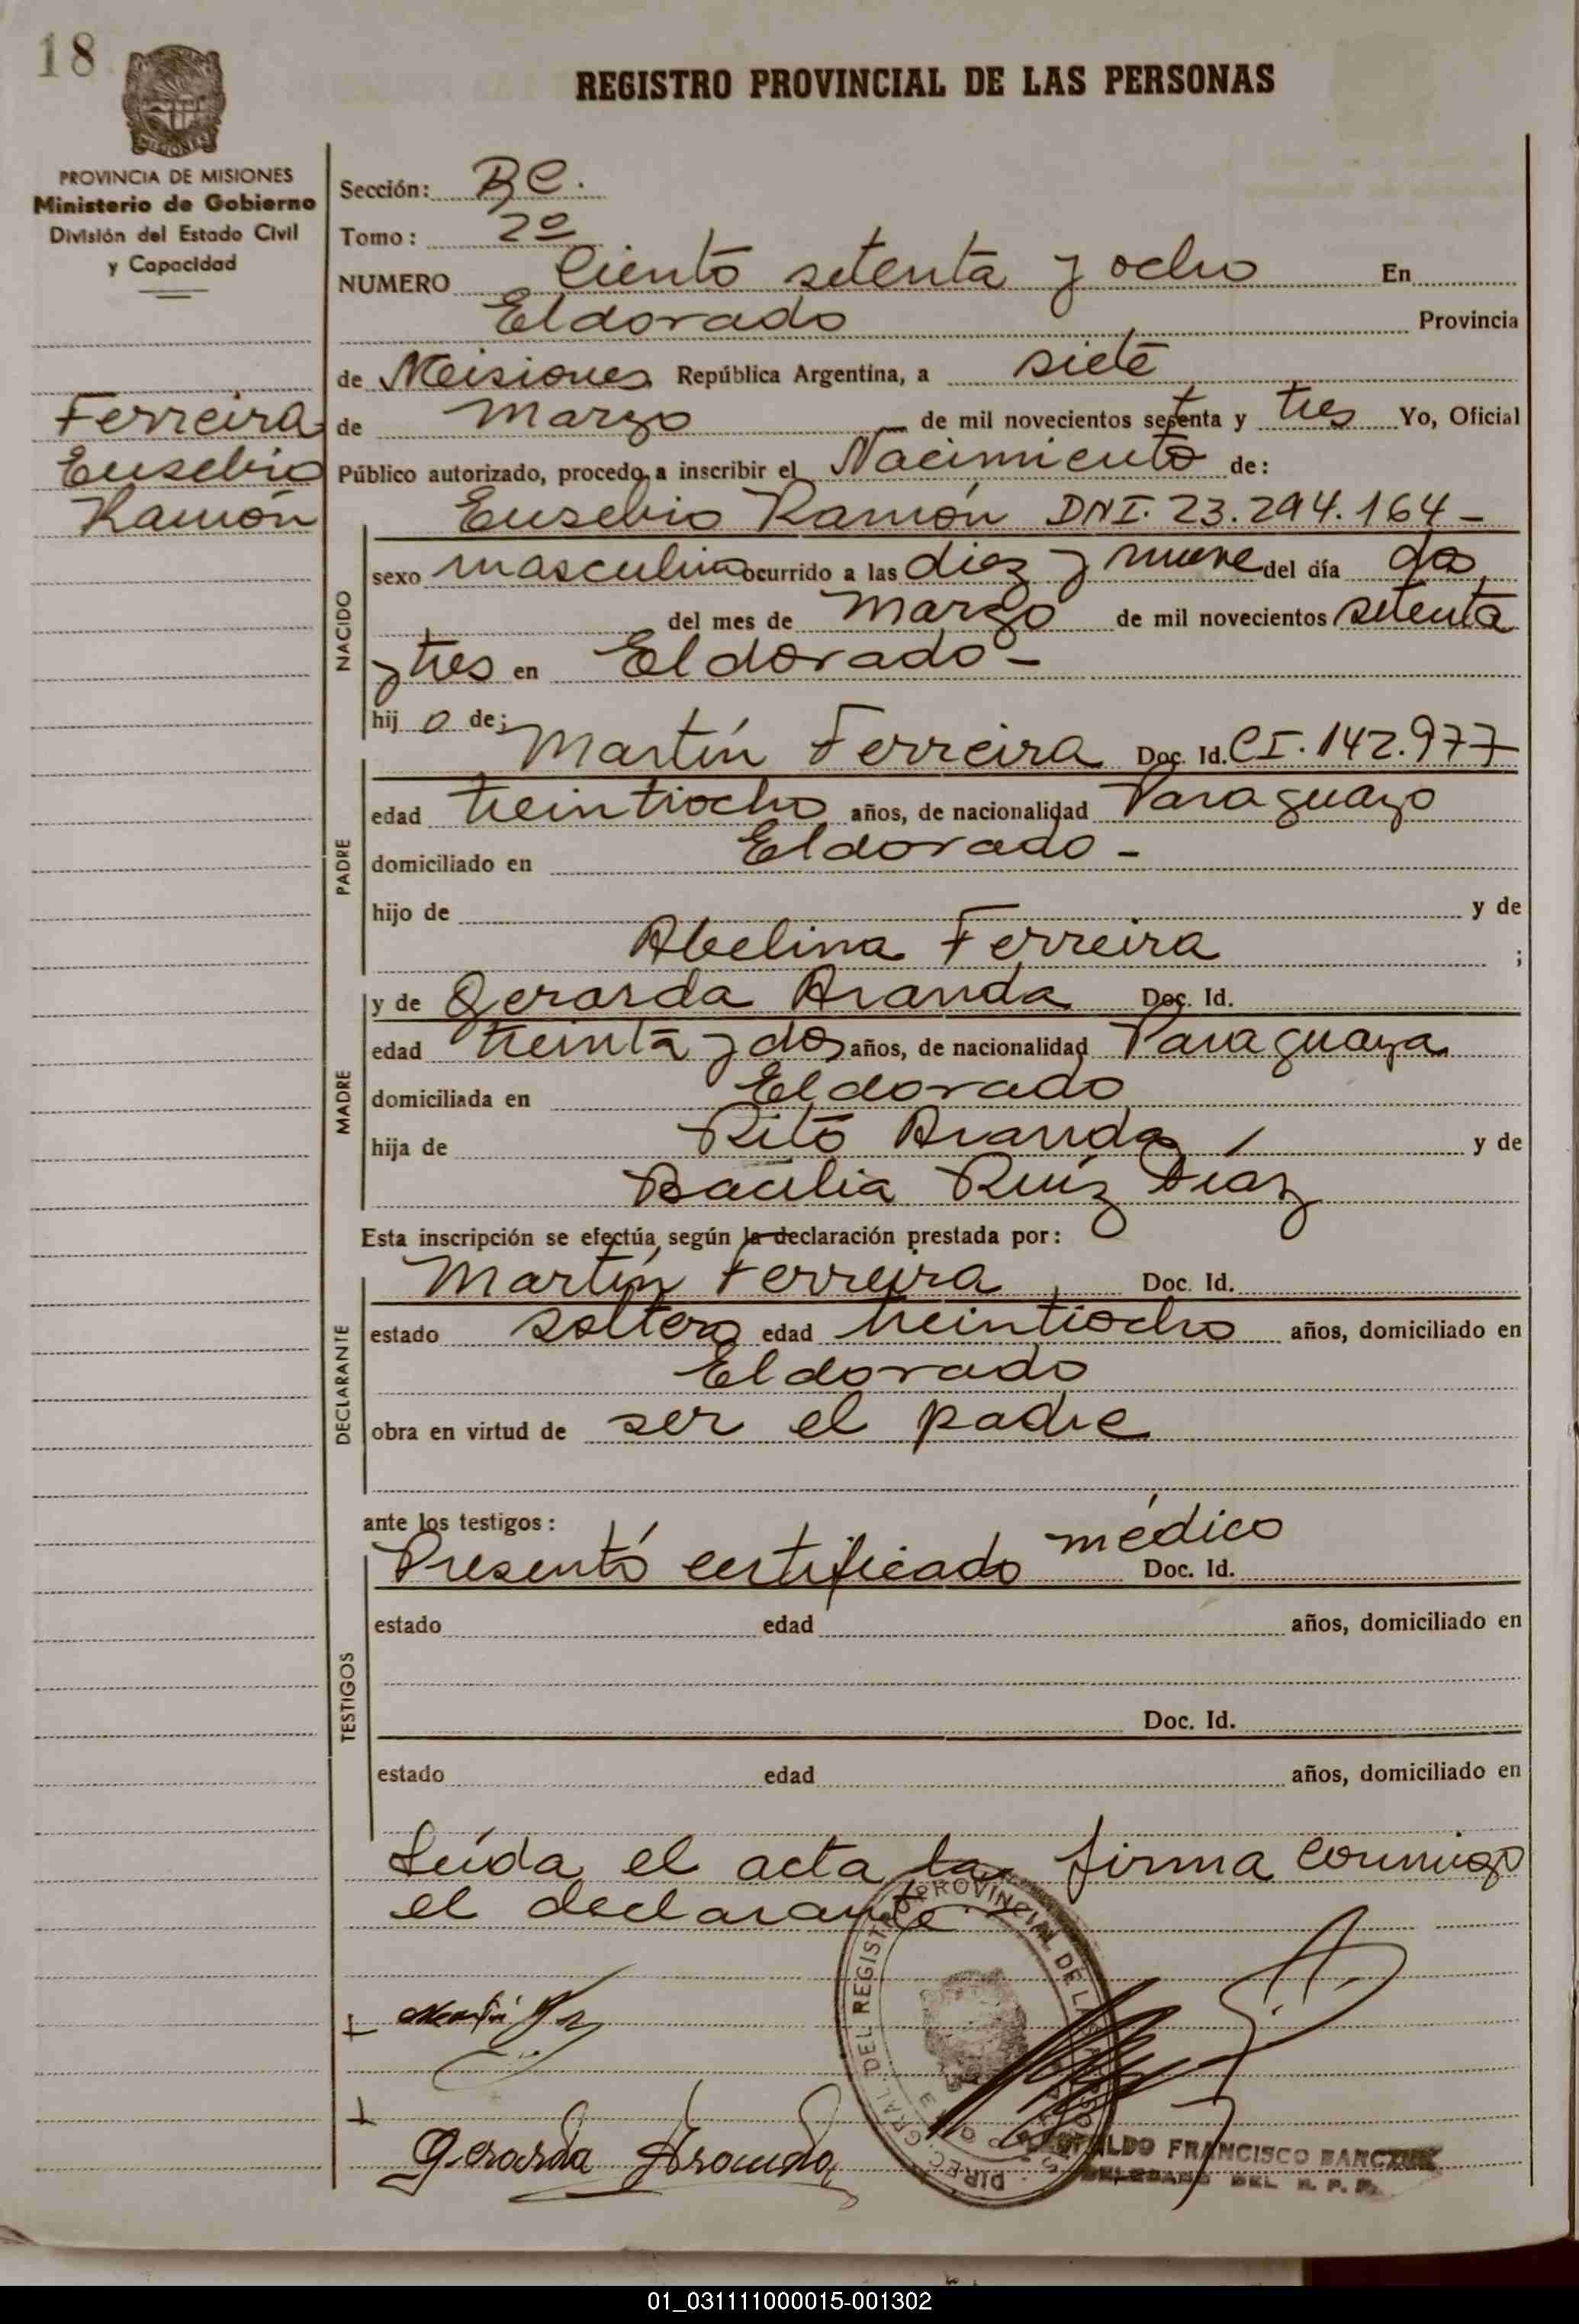 18
REGISTRO PROVINCIAL DE LAS PERSONAS
MISIONES
PROVINCIA DE MISIONES
Ministerio de Gobierno
División del Estado Civil
y Capacidad
Ferreira
Eusebio
Ramón
Sección: BC.
Tomo: 2º
NUMERO Ciento setenta y ocho En
Eldorado Provincia
de Misiones República Argentina, a siete
de Marzo de mil novecientos setenta y tres Yo, Oficial
Público autorizado, procedo a inscribir el Nacimiento de:
Eusebio Ramón DNI. 23.294.164-
NACIDO
sexo masculino ocurrido a las diez y nueve del día dos
del mes de Marzo de mil novecientos setenta
y tres en Eldorado-
hij o de;
PADRE
Martín Ferreira Doc. Id. CI. 142.977
edad treintiocho años, de nacionalidad Paraguayo
domiciliado en Eldorado-
hijo de y de
Abelina Ferreira ;
MADRE
y de Gerarda Aranda Doc. Id.
edad treinta y dos años, de nacionalidad Paraguaya
domiciliada en Eldorado
hija de Rito Aranda y de
Bacilia Ruíz Díaz
Esta inscripción se efectúa según la declaración prestada por:
DECLARANTE
Martín Ferreira, Doc. Id.
estado soltero edad treintiocho años, domiciliado en
Eldorado
obra en virtud de ser el padre
ante los testigos:
TESTIGOS
Presentó certificado médico Doc. Id.
estado edad años, domiciliado en
Doc. Id.
estado edad años, domiciliado en
Leída el acta la firma conmigo
el declarante.
Martín
Gerarda Aranda
DIREC. GRAL. DEL REGISTRO PROVINCIAL DE LAS PERSONAS
FRANCISCO BARCZUK
DELEGADO DEL R. P. P.
01_031111000015-001302